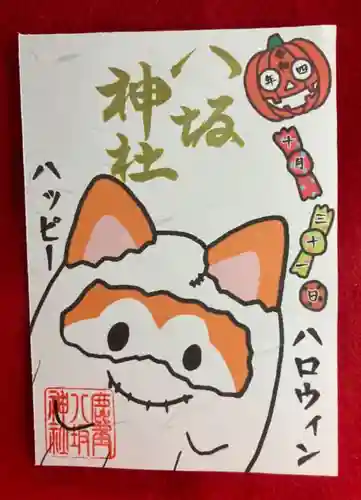 八坂
神社
ハッピー
ハロウィン
四年
十月
三十一
日
八坂
神社